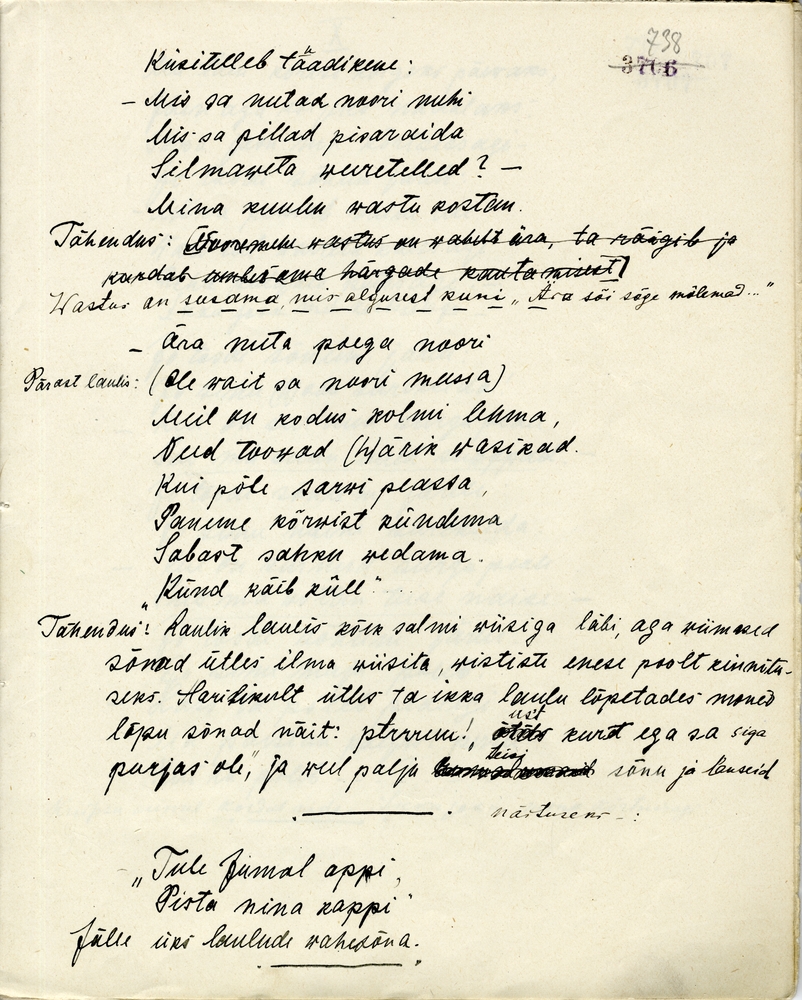 738
3706
Küsitelleb täädikene:
– Mis sa nutad noori nuhi
Mis sa pillad pisaraida
Silmaweta weeretelled? –
Mina kuulen wastu kostan.
Tähendus: (Nooremehe wastus on wahelt ära, ta räägib ja
kardab ema härgade kautamisest)
Wastus on susama, mis algusest kuni „Ära söi söge mõlemad..."
– Ära nuta poega noori
Pärast laulis: (Ole wait sa noori mussa)
Meil on kodus kolmi lehma,
Need toowad (h)ärik wasikad.
Kui põle sarwi peassa,
Paneme kõrwist kündema
Sabast sahku wedama.
„Künd käib küll"...
Tähendus: Laulik laulis kõik salmi wiisiga läbi, aga wiimased
sõnad ütles ilma wiisita, wististe enese poolt kinnitu-
seks. Harilikult ütles ta ikka laulu lõpetades moned
lõpu sõnad näit: ptrrruu! „ust kurat ega sa siga
purjas ole," ja weel palju teisi sõnu ja lauseid
näituseks –:
„Tule Jumal appi,
Pista nina kappi"
Jälle üks laulude wahesõna.